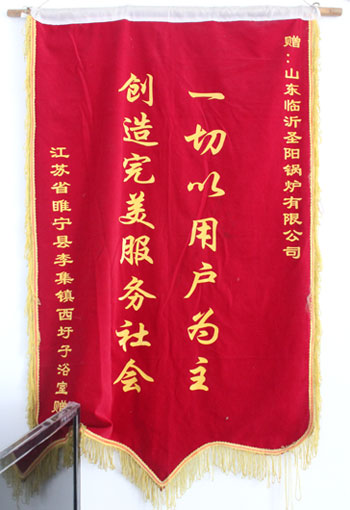 赠：山东临沂圣阳锅炉有限公司
一切以用户为主
创造完美服务社会
江苏省睢宁县李集镇西圩子浴室赠